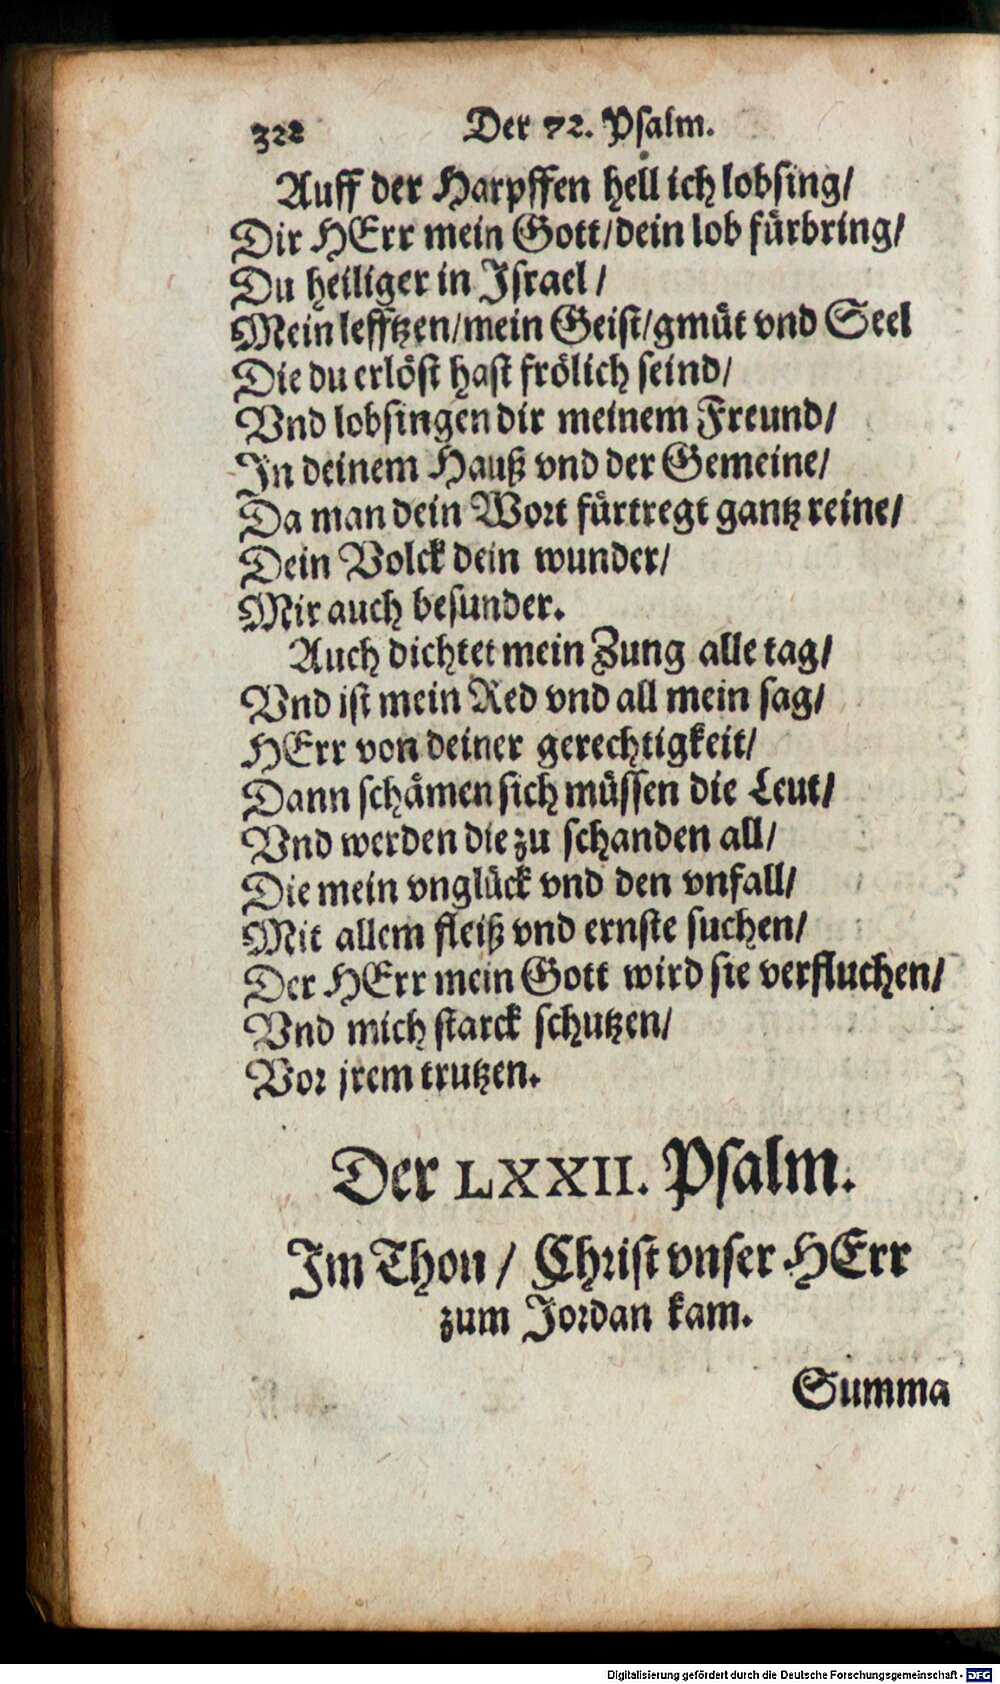 322 Der 72. Psalm.
Auff der Harpffen hell ich lobsing/
Dir HErr mein Gott/dein lob fürbring/
Du heiliger in Israel/
Mein lefftzen/mein Geist/gmüt vnd Seel
Die du erlöst hast frölich seind/
Vnd lobsingen dir meinem Freund/
In deinem Hauß vnd der Gemeine/
Da man dein Wort fürtregt gantz reine/
Dein Volck dein wunder/
Mir auch besunder.
Auch dichtet mein Zung alle tag/
Vnd ist mein Red vnd all mein sag/
HErr von deiner gerechtigkeit/
Dann schämen sich müssen die Leut/
Vnd werden die zu schanden all/
Die mein vnglück vnd den vnfall/
Mit allem fleiß vnd ernste suchen/
Der HErr mein Gott wird sie verfluchen/
Vnd mich starck schutzen/
Vor jrem trutzen.
Der LXXII. Psalm.
Im Thon/ Christ vnser HErr
zum Jordan kam.
Summa
Digitalisierung gefördert durch die Deutsche Forschungsgemeinschaft - DFG